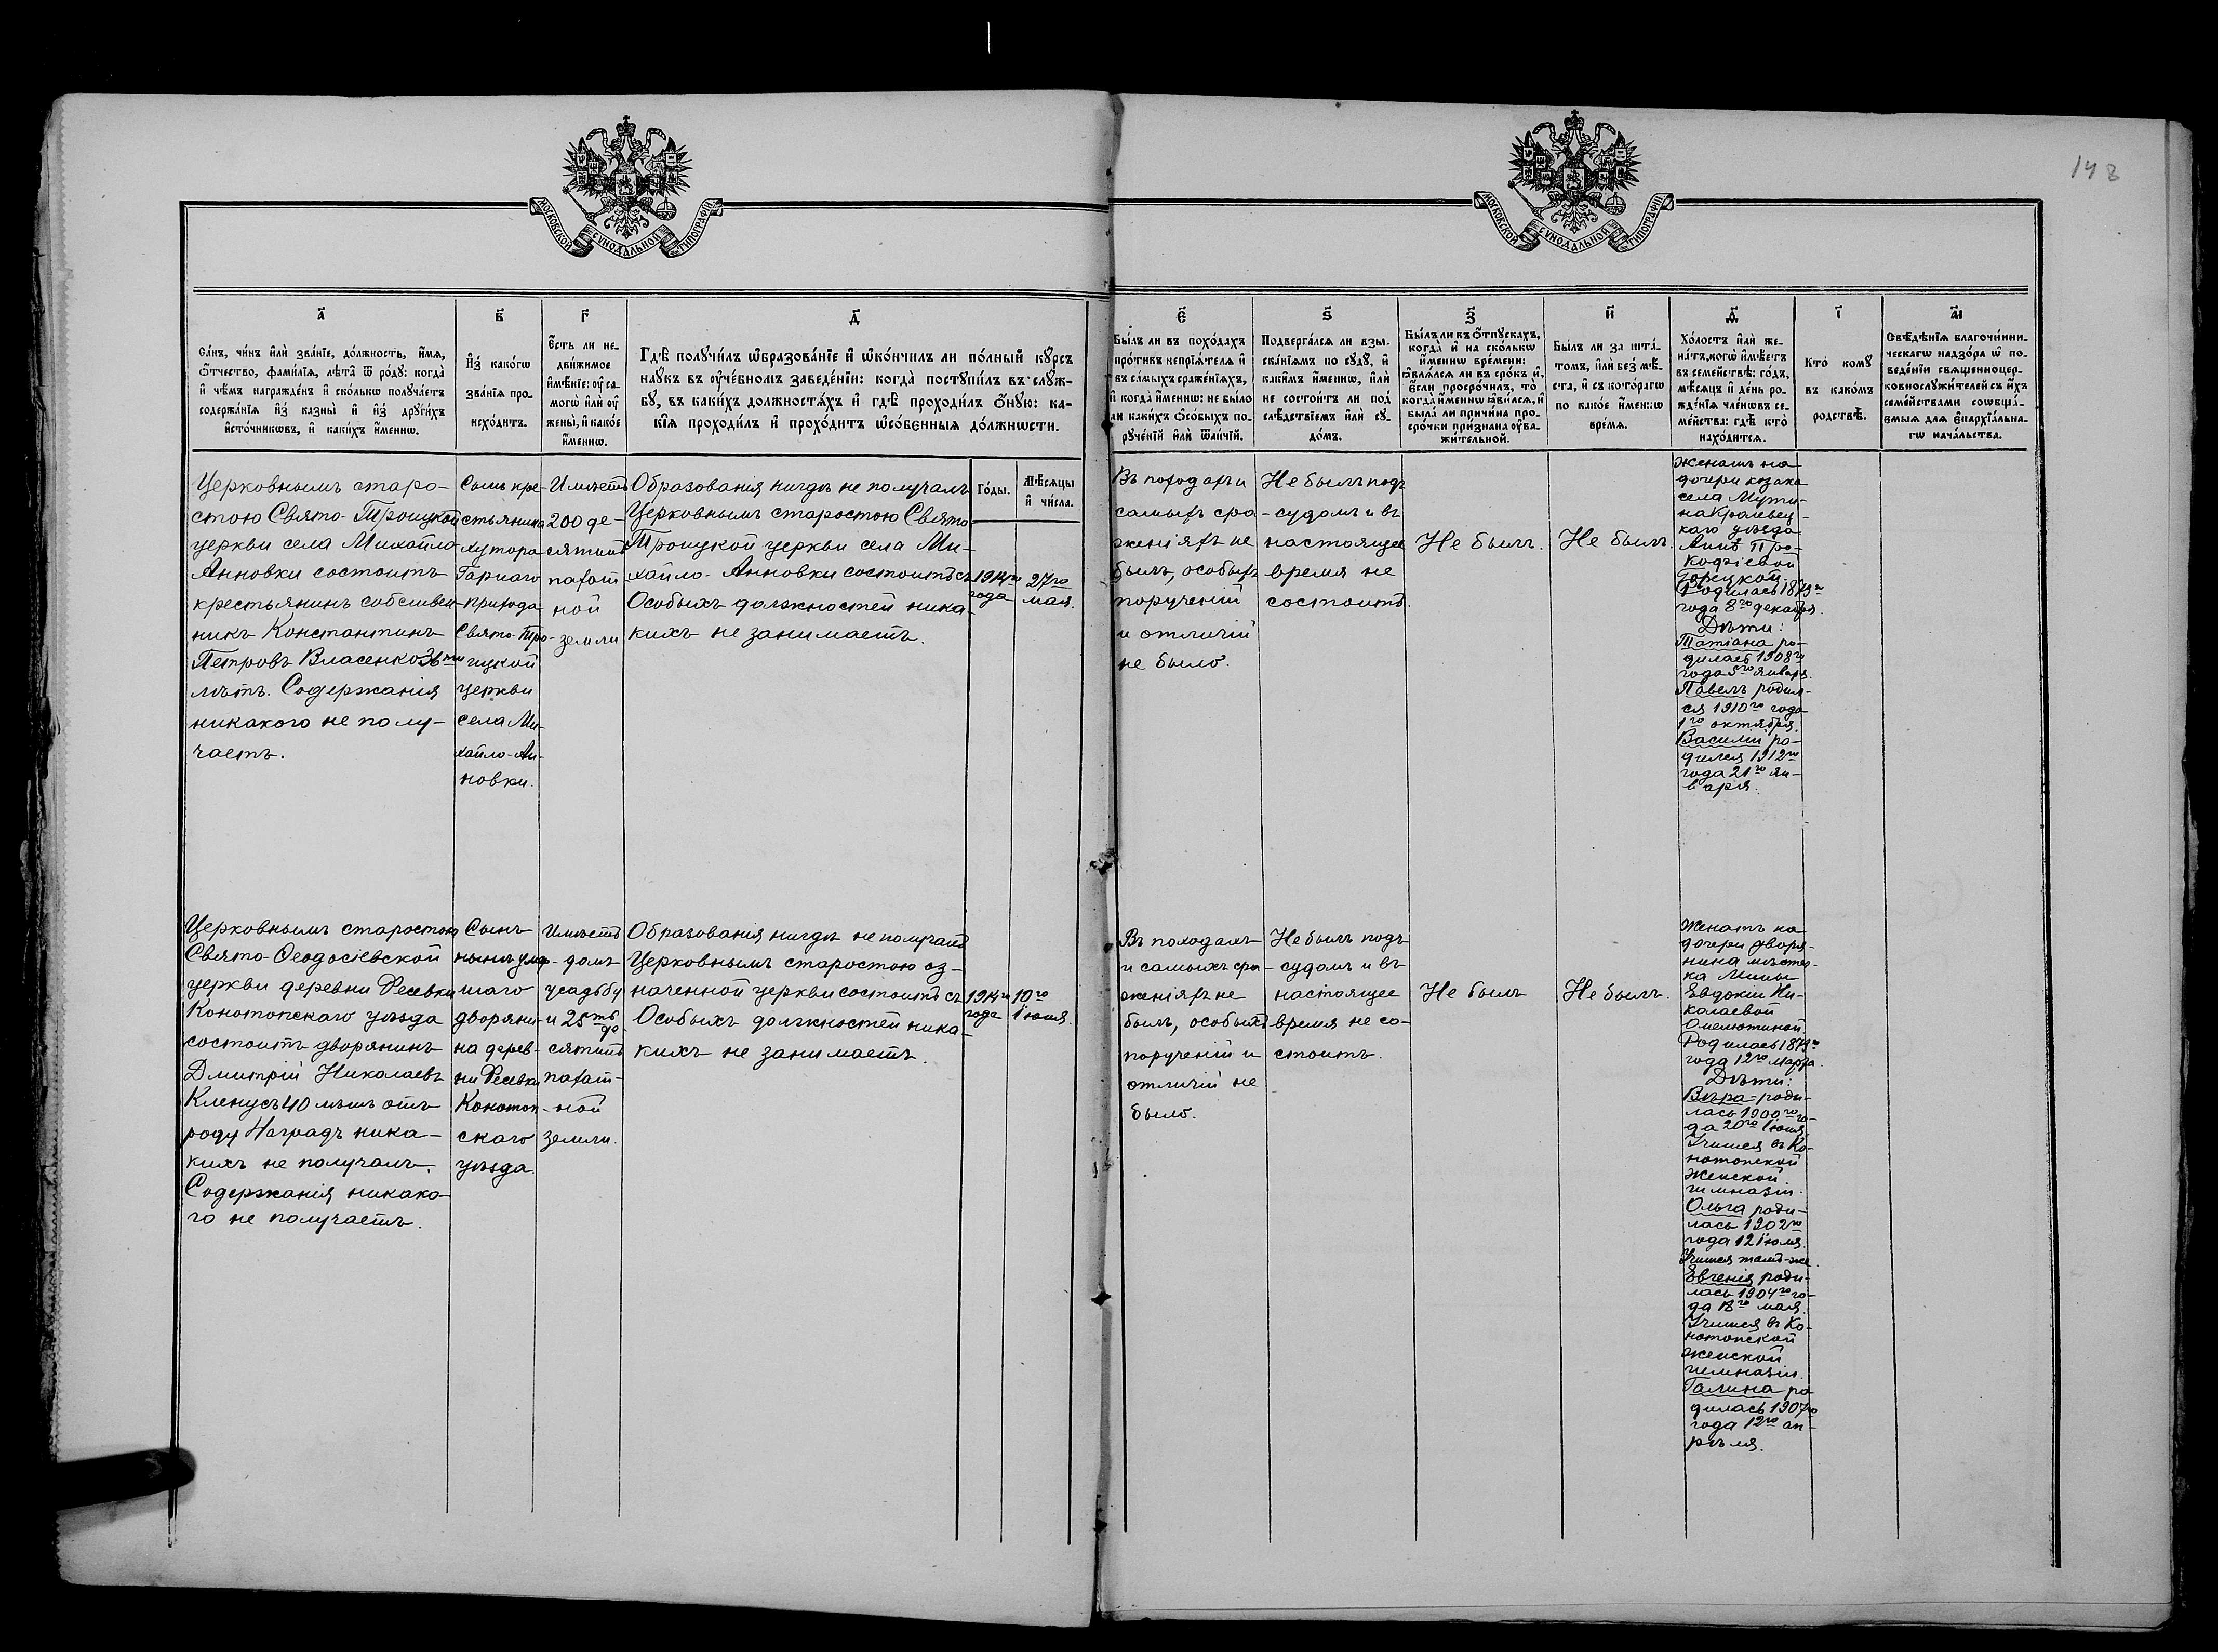 148
МОСКОВСКОЙ СѴНОДАЛЬНОЙ ТИПОГРАФІИ
МОСКОВСКОЙ СѴНОДАЛЬНОЙ ТИПОГРАФІИ
а҃
Са́нъ, чи́нъ и҆лѝ зва́нїе, до́лжность, и҆́мѧ,
ѻ҆́тчество, фами́лїѧ, лѣ́та ѿ ро́дꙋ: когда̀
и҆ чѣ́мъ награжде́нъ и҆ ско́лькѡ полꙋча́етъ
содержа́нїѧ и҆з̾ казны̀ и҆ и҆з̾ дрꙋги́хъ
и҆сто́чникѡвъ, и҆ каки́хъ и҆́меннѡ.
в҃
И҆з̾ како́гѡ
зва́нїѧ про-
исхо́дитъ.
г҃
Є҆́сть ли не-
дви́жимое
и҆мѣ́нїе: ᲂу҆ са-
могѡ̀ и҆лѝ ᲂу҆
жены̀, и҆ како́е
и҆́меннѡ.
д҃
Гдѣ̀ полꙋчи́лъ ѡ҆бразова́нїе и҆ ѡ҆ко́нчилъ ли по́лный кꙋ́рсъ
наꙋ́къ въ ᲂу҆че́бномъ заведе́нїи: когда̀ постꙋпи́лъ въ слꙋ́ж-
бꙋ, въ каки́хъ должностѧ́хъ и҆ гдѣ̀ проходи́лъ ѻ҆́нꙋю: ка-
кі̑ѧ проходи́лъ и҆ прохо́дитъ ѡ҆со́бенныѧ до́лжнѡсти.
Го́ды.
Мѣ́сѧцы
и҆ чи́сла.
є҃
Бы́лъ ли въ похо́дахъ
про́тивъ непрїѧ́телѧ и҆
въ са́мыхъ сраже́нїѧхъ,
и҆ когда̀ и҆́меннѡ: не бы́ло
ли каки́хъ ѻ҆со́быхъ по-
рꙋче́нїй и҆лѝ ѿли́чїй.
ѕ҃
Подверга́лсѧ ли взы-
ска́нїѧмъ по сꙋдꙋ̀, и҆
каки̑мъ и҆́меннѡ, и҆лѝ
не состои́тъ ли под̾
слѣ́дствїемъ и҆лѝ сꙋ-
до́мъ.
з҃
Бы́лъ ли въ ѻ҆́тпꙋскахъ,
когда̀ и҆ на ско́лькѡ
и҆́меннѡ вре́мени:
ꙗ҆влѧ́лсѧ ли въ сро́къ и҆,
є҆́сли просро́чилъ, то̀
когда̀ и҆́меннѡ ꙗ҆ви́лсѧ, и҆
была̀ ли причи́на про-
сро́чки при́знана ᲂу҆ва-
жи́тельной.
и҃
Бы́лъ ли за шта́-
томъ, и҆лѝ без̾ мѣ́-
ста, и҆ съ кото́рагѡ
по како́е и҆́меннѡ
вре́мѧ.
ѳ҃
Хо́лостъ и҆лѝ же-
на́тъ, когѡ̀ и҆мѣ́етъ
въ семе́йствѣ: го́дъ,
мѣ́сѧцъ и҆ де́нь ро-
жде́нїѧ чле́нѡвъ се-
ме́йства: гдѣ̀ кто̀
нахо́дитсѧ.
і҃
Кто̀ комꙋ̀
въ како́мъ
родствѣ̀.
а҃і
Свѣ́дѣнїѧ благочи́нни-
ческагѡ надзо́ра ѡ҆ по-
веде́нїи свѧщенноцер-
ковнослꙋжи́телей съ и҆́хъ
семе́йствами сѡѡбща́-
ємыѧ длѧ є҆парху́альна-
гѡ нача́льства.
Церковнымъ старо-
стою Свято-Троицкой
церкви села Михайло-
Анновки состоитъ
крестьянинъ собствен-
никъ Константинъ
Петровъ Власенко 36ти
лѣтъ. Содержанія
никакого не полу-
чаетъ.
Сынъ кре-
стьянина
хутора
Гарнаго
прихода
Свято-Тро-
ицкой
церкви
села Ми-
хайло-Ан-
новки.
Имѣетъ
200 де-
сятинъ
пахат-
ной
земли
Образованія нигдѣ не получалъ
Церковнымъ старостою Свято-
Троицкой церкви села Ми-
хайло-Анновки состоитъ съ
Особыхъ должностей ника-
кихъ не занимаетъ.
1914го
года
27го
мая.
Въ походахъ и
самыхъ сра-
женіяхъ не
былъ, особыхъ
порученій
и отличій
не было.
Не былъ подъ
судомъ и въ
настоящее
время не
состоитъ.
Не былъ.
Не былъ.
Женатъ на
дочери козака
села Мути-
на Кролевец-
каго уѣзда
Аннѣ Про-
кофіевой
Горецкой.
Родилась 1879го
года 8го декабря.
Дѣти:
Татіана ро-
дилась 1908го
года 5го января.
Павелъ родил-
ся 1910го года
1го октября.
Василій ро-
дился 1912го
года 21го ян-
варя.
Церковнымъ старостою
Свято-Ѳеодосіевской
церкви деревни Ресевки
Конотопскаго уѣзда
состоитъ дворянинъ
Дмитрій Николаевъ
Кленусъ 40 лѣтъ отъ
роду Наградъ ника-
кихъ не получалъ.
Содержанія никако-
го не получаетъ.
Сынъ
нынѣ умер-
шаго
дворяни-
на дерев-
ни Ресевки
Конотоп-
скаго
уѣзда.
Имѣетъ
домъ
усадьбу
и 25ть де-
сятинъ
пахат-
ной
земли.
Образованія нигдѣ не получалъ
Церковнымъ старостою оз-
наченной церкви состоитъ съ
Особыхъ должностей ника-
кихъ не занимаетъ.
1914го
года
10го
іюня.
Въ походахъ
и самыхъ сра-
женіяхъ не
былъ, особыхъ
порученій и
отличій не
было.
Не былъ подъ
судомъ и въ
настоящее
время не со-
стоитъ.
Не былъ
Не былъ.
Женатъ на
дочери дворя-
нина мѣстеч-
ка Мины
Евдокіи Ни-
колаевой
Омелютиной.
Родилась 1879го
года 12го марта.
Дѣти:
Вѣра роди-
лась 1900го го-
да 20го іюня.
Учится въ Ко-
нотопской
женской
гимназіи.
Ольга роди-
лась 1902го
года 12 іюля.
Учится тамъ-же.
Евгенія роди-
лась 1904го го-
да 18го мая.
Учится въ Ко-
нотопской
женской
гимназіи.
Галина ро-
дилась 1907го
года 12го ап-
рѣля.